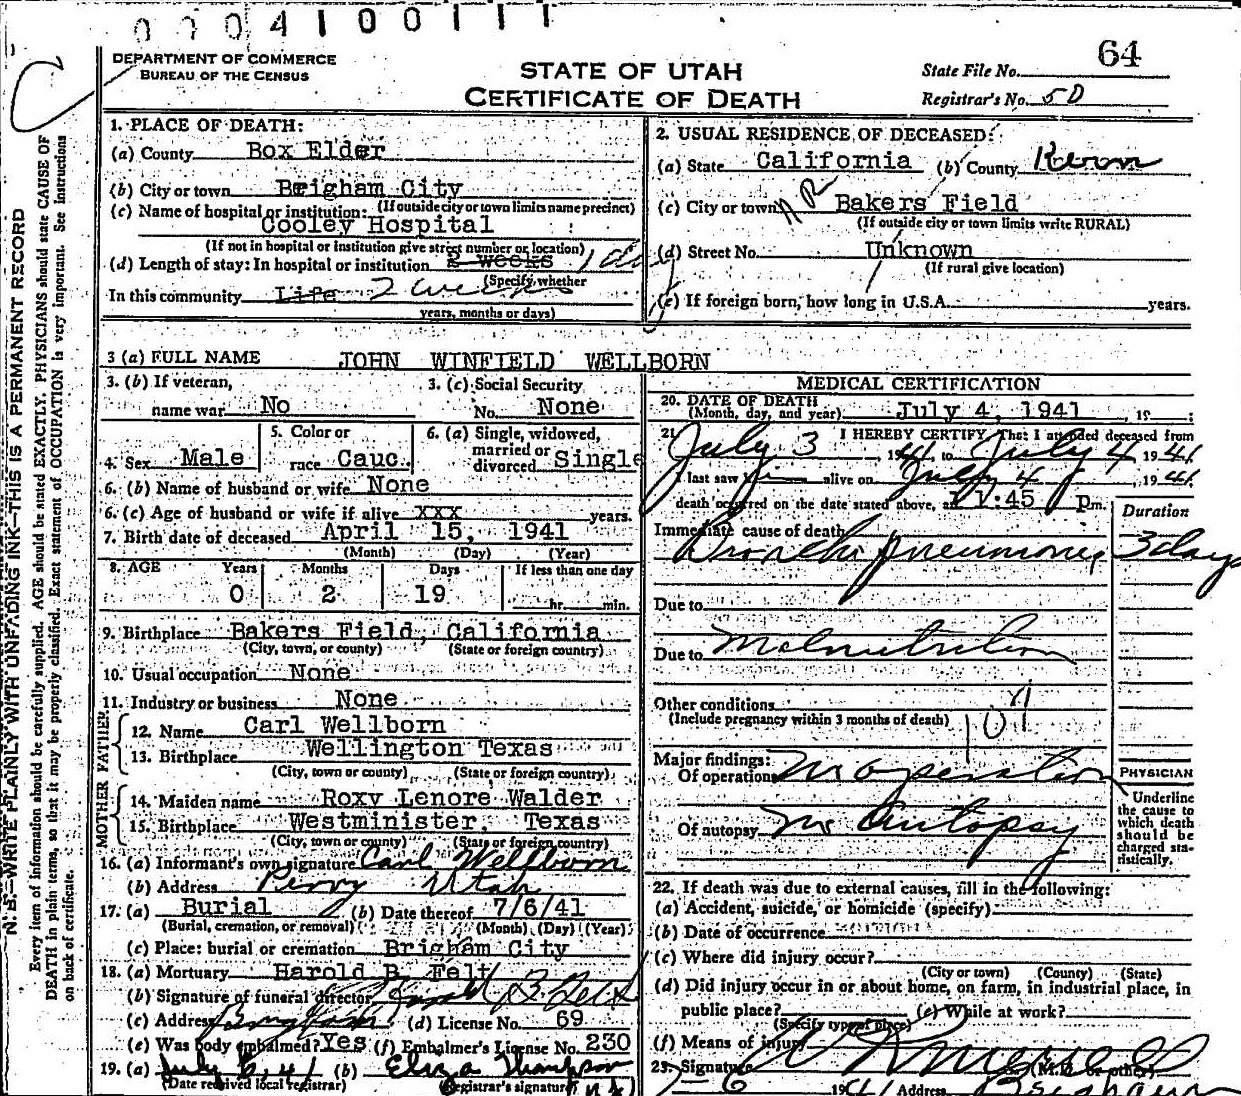 0004100111
DEPARTMENT OF COMMERCE
BUREAU OF THE CENSUS
STATE OF UTAH
CERTIFICATE OF DEATH
64
State File No.
Registrar's No. 5D
N. B.—WRITE PLAINLY WITH UNFADING INK—THIS IS A PERMANENT RECORD
Every item of information should be carefully supplied. AGE should be stated EXACTLY. PHYSICIANS should state CAUSE OF
DEATH in plain terms, so that it may be properly classified. Exact statement of OCCUPATION is very important. See instructions
on back of certificate.
1. PLACE OF DEATH:
(a) County Box Elder
(b) City or town Brigham City
(If outside city or town limits name precinct)
(c) Name of hospital or institution:
Cooley Hospital
(If not in hospital or institution give street number or location)
(d) Length of stay: In hospital or institution 2 weeks 1 da
(Specify whether
In this community Life 2 weeks
years, months or days)
2. USUAL RESIDENCE OF DECEASED:
(a) State California (b) County Kern
(c) City or town NR Bakers Field
(If outside city or town limits write RURAL)
(d) Street No. Unknown
(If rural give location)
(e) If foreign born, how long in U.S.A. years.
3 (a) FULL NAME JOHN WINFIELD WELLBORN
3. (b) If veteran,
name war No
3. (c) Social Security
No. None
4. Sex Male
5. Color or
race Cauc.
6. (a) Single, widowed,
married or
divorced Single
6. (b) Name of husband or wife None
6. (c) Age of husband or wife if alive xxx years.
7. Birth date of deceased April 15, 1941
(Month) (Day) (Year)
8. AGE Years Months Days If less than one day
0 2 19 hr. min.
9. Birthplace Bakers Field, California
(City, town, or county) (State or foreign country)
10. Usual occupation None
11. Industry or business None
FATHER
12. Name Carl Wellborn
13. Birthplace Wellington Texas
(City, town or county) (State or foreign country)
MOTHER
14. Maiden name Roxy Lenore Walder
15. Birthplace Westminister, Texas
(City, town or county) (State or foreign country)
16. (a) Informant's own signature Carl Wellborn
(b) Address Perry Utah
17. (a) Burial (b) Date thereof 7/6/41
(Burial, cremation, or removal) (Month) (Day) (Year)
(c) Place: burial or cremation Brigham City
18. (a) Mortuary Harold B. Felt
(b) Signature of funeral director Harold B Felt
(c) Address Brigham (d) License No. 69
(e) Was body embalmed? Yes (f) Embalmer's License No. 230
19. (a) July 6, 41 (b) Eliza Thompson
(Date received local registrar) (Registrar's signature)
MEDICAL CERTIFICATION
20. DATE OF DEATH
(Month, day, and year) July 4, 1941, 19 :
21. I HEREBY CERTIFY, That I attended deceased from
July 3, 1941 to July 4, 1941
I last saw him alive on July 4, 1941
death occurred on the date stated above, at 11:45 p m.
Duration
Immediate cause of death
Broncho pneumonia 3 days
Due to
Due to Malnutrition
Other conditions
(Include pregnancy within 3 months of death)
107
Major findings:
Of operations no operation
Of autopsy no autopsy
PHYSICIAN
Underline
the cause to
which death
should be
charged sta-
tistically.
22. If death was due to external causes, fill in the following:
(a) Accident, suicide, or homicide (specify)
(b) Date of occurrence
(c) Where did injury occur?
(City or town) (County) (State)
(d) Did injury occur in or about home, on farm, in industrial place, in
public place? (e) While at work?
(Specify type of place)
(f) Means of injury
23. Signature (M.D. or other)
1941 Address Brigham